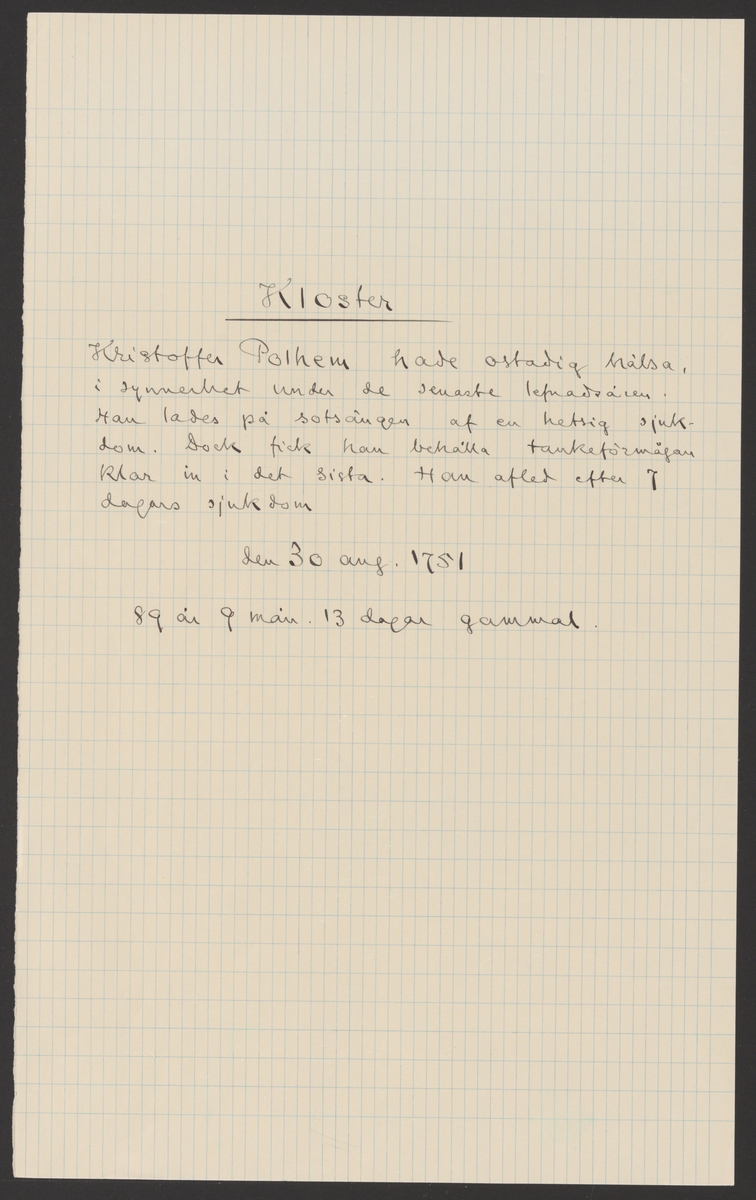 Kloster
Kristoffer Polhem hade ostadig hälsa,
i synnerhet under de senaste lefnadsåren.
Han lades på sotsängen af en hetsig sjuk-
dom. Dock fick han behålla tankeförmågan
klar in i det sista. Han afled efter 7
dagars sjukdom
den 30 aug. 1751
89 år 9 mån. 13 dagar gammal.